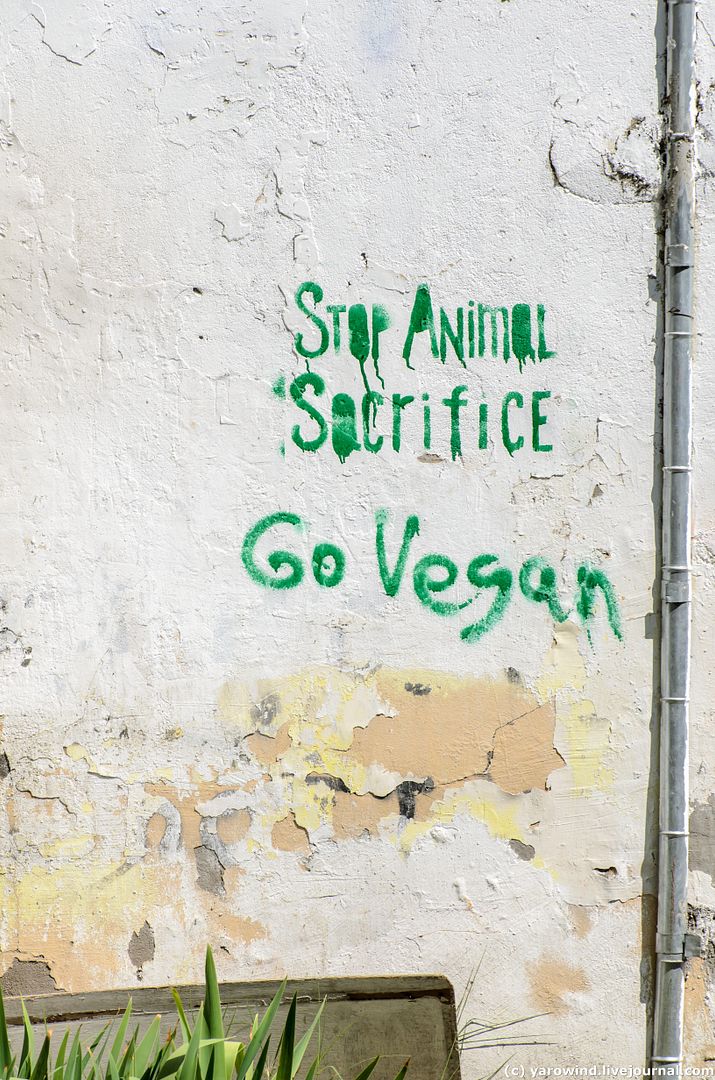 Stop Animal
Sacrifice
Go Vegan
(c) yarowind.livejournal.com